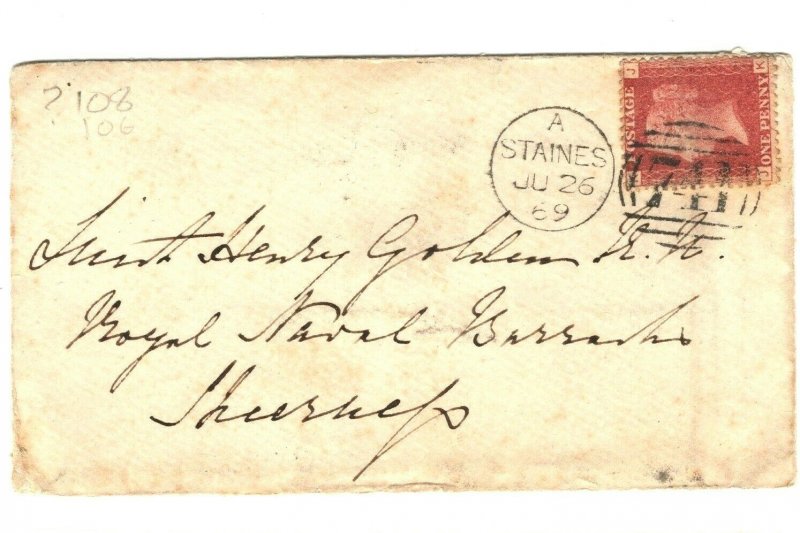 ? 108
106
J K
POSTAGE
ONE PENNY
J
A
STAINES
JU 26
69
741
Lieut Henry Golden R.N.
Royal Naval Barracks
Sheerness